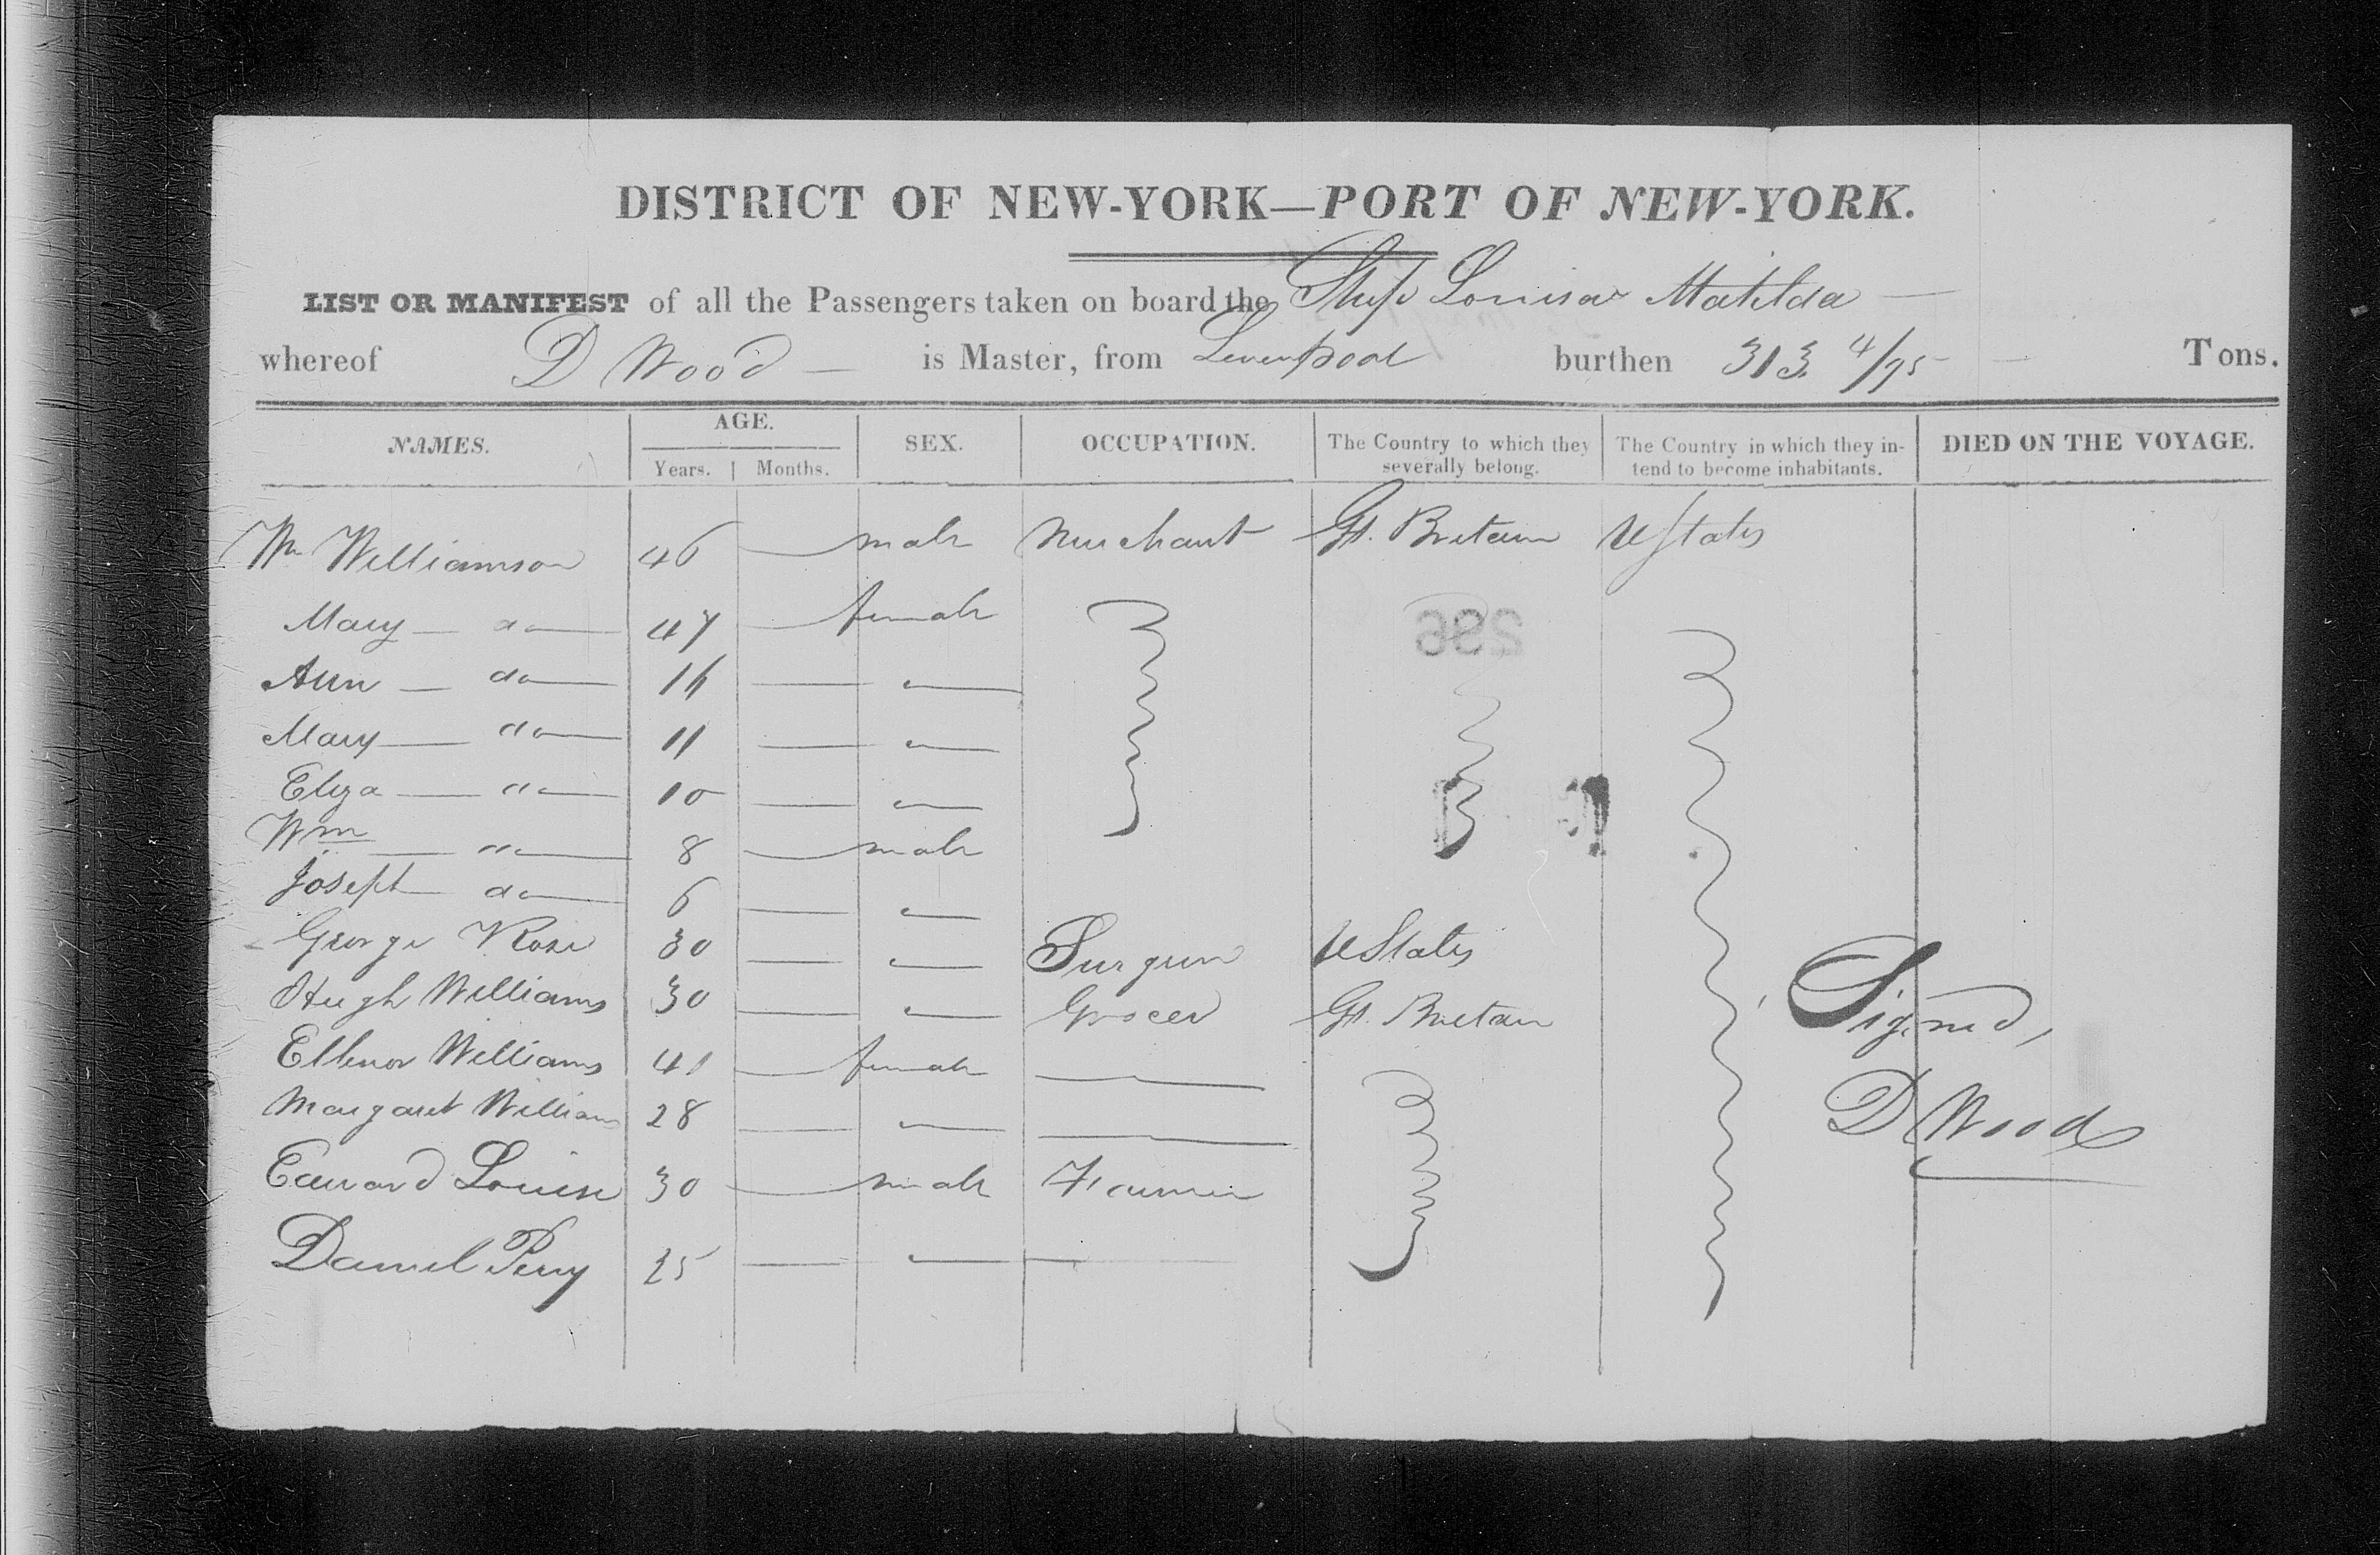 DISTRICT OF NEW-YORK—PORT OF NEW-YORK.
LIST OR MANIFEST of all the Passengers taken on board the Ship Louisa Matilda —
whereof D Wood — is Master, from Liverpool burthen 313 4/95 — Tons.
NAMES. AGE. Years. Months. SEX. OCCUPATION. The Country to which they severally belong. The Country in which they intend to become inhabitants. DIED ON THE VOYAGE.
Wm Williamson 46 — male Merchant Gt. Britain UStates
Mary — do — 47 — female
296
Ann — do — 16 — —
Mary — do — 11 — —
Eliza — do — 10 — —
Wm — do — 8 — male
Joseph — do — 6 — —
George Rose 30 — — Surgeon UStates
Hugh Williams 30 — — Grocer Gt. Britain
Ellenor Williams 41 — female —
Margaret Williams 28 — — —
Edward Louise 30 — male Farmer
Daniel Perry 25 — — —
Signed,
D Wood